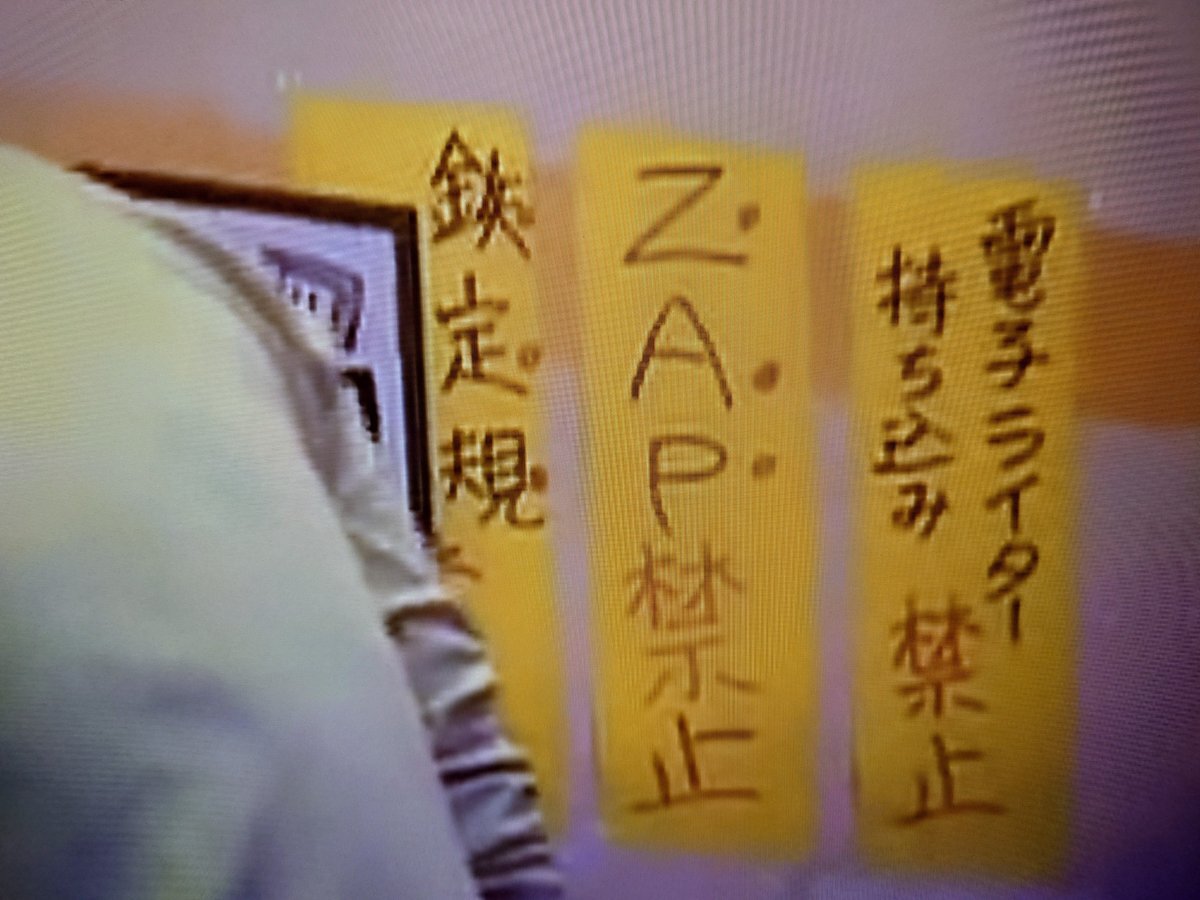 電子ライター
持ち込み 禁止
Z.A.P.禁止
鉄定規